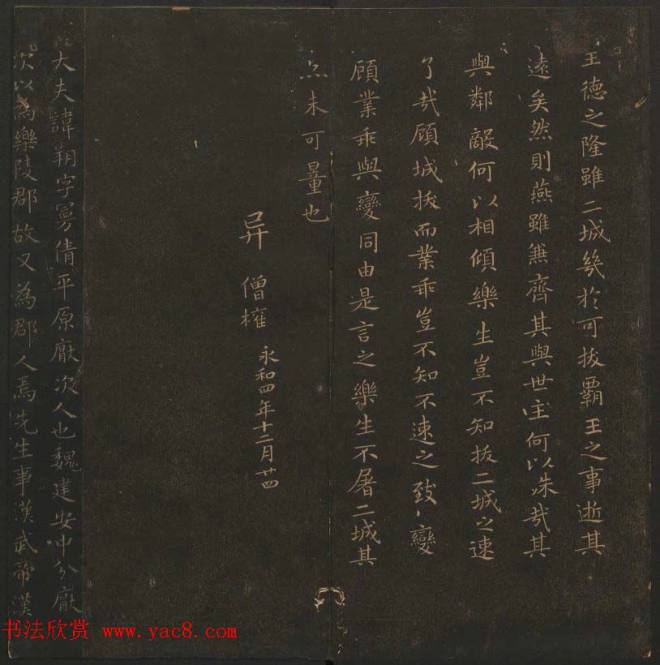 王德之隆雖二城幾於可拔霸王之事逝其
遠矣然則燕雖兼齊其與世主何以殊哉其
與鄰敵何以相傾樂生豈不知拔二城之速
了哉顧城拔而業乖豈不知不速之致變
顧業乖與變同由是言之樂生不屠二城其
亦未可量也
异
僧權
永和四年十二月廿四
大夫諱朔字曼倩平原厭次人也魏建安中分厭
次以為樂陵郡故又為郡人焉先生事漢武帝漢
书法欣赏 www.yac8.com